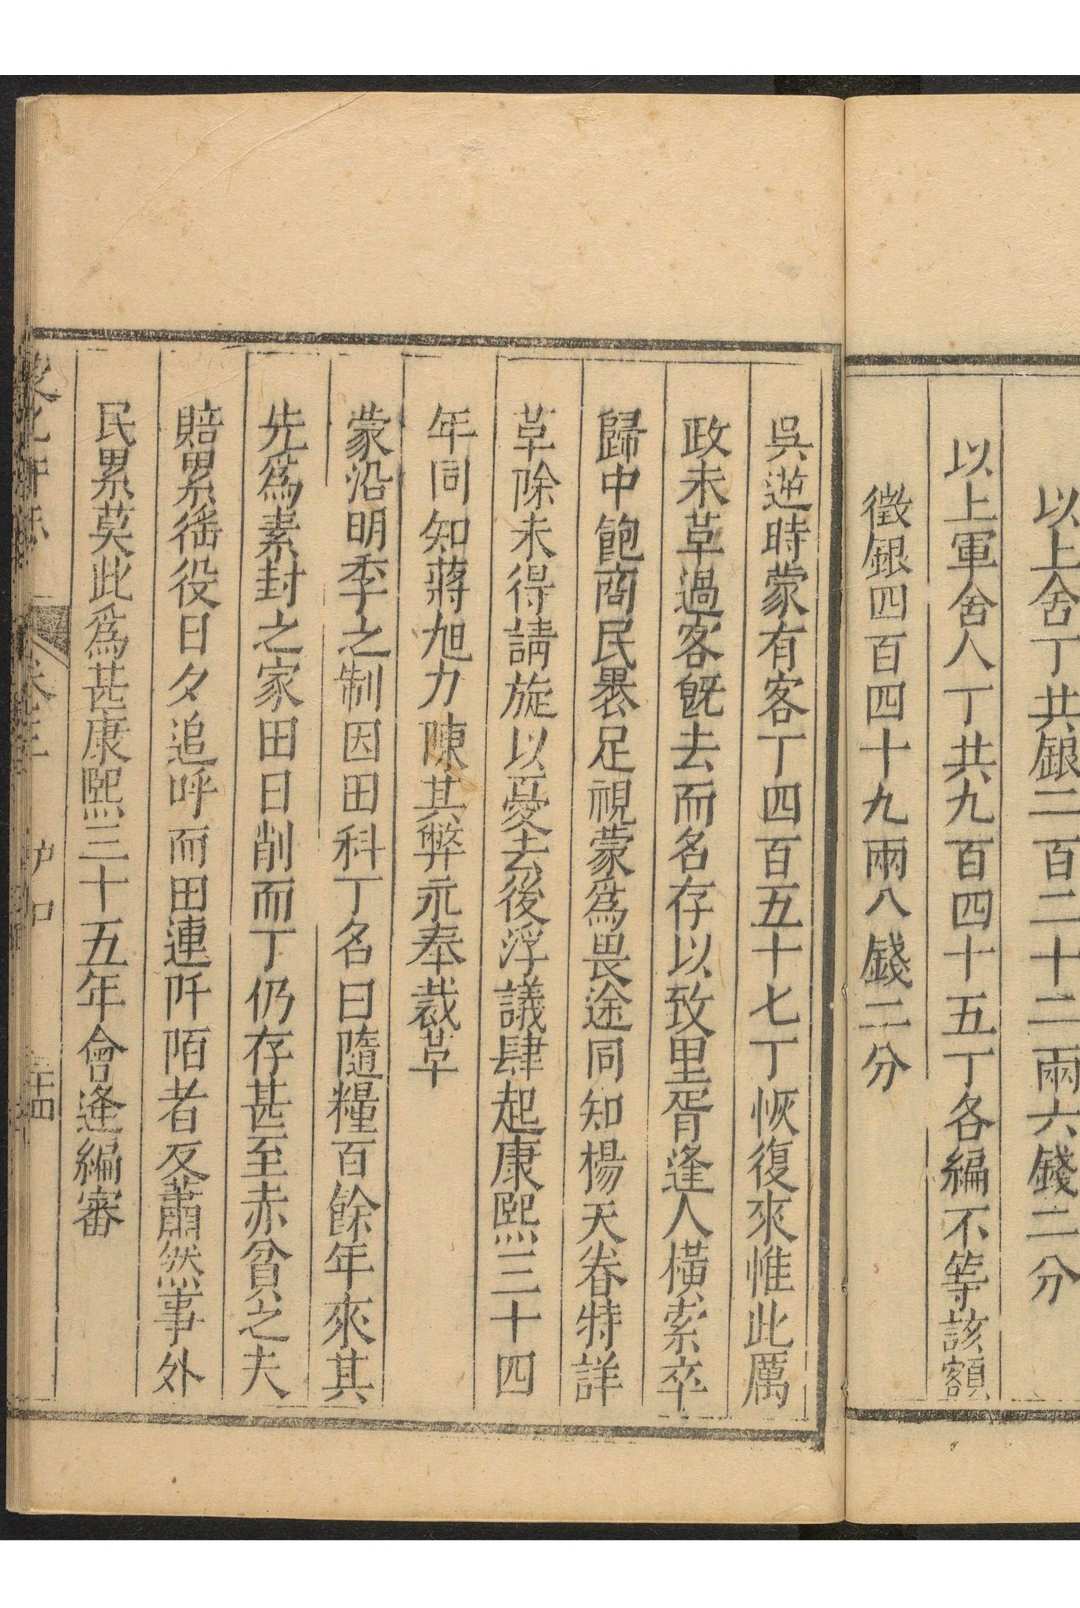 以上舍丁共銀二百二十二兩六錢二分
以上軍舍人丁共九百四十五丁各編不等該額
徵銀四百四十九兩八錢二分
吳逆時蒙有客丁四百五十七丁恢復來惟此厲
政未草過客旣去而名存以致里胥逢人橫索卒
歸中飽商民罢足視蒙爲畏途同知楊天眷特詳
草除未得請旋以憂去後浮議肆起康熙三十四
年同知蔣旭力陳其弊永奉裁草
蒙沿明季之制因田科丁名曰隨糧百餘年來其
先爲素封之家田日削而丁仍存甚至赤貧之夫
賠累徭役日夕追呼而田連阡陌者反蕭然事外
民累莫此爲甚康熙三十五年會逢編審
卷三 戶口 二十四